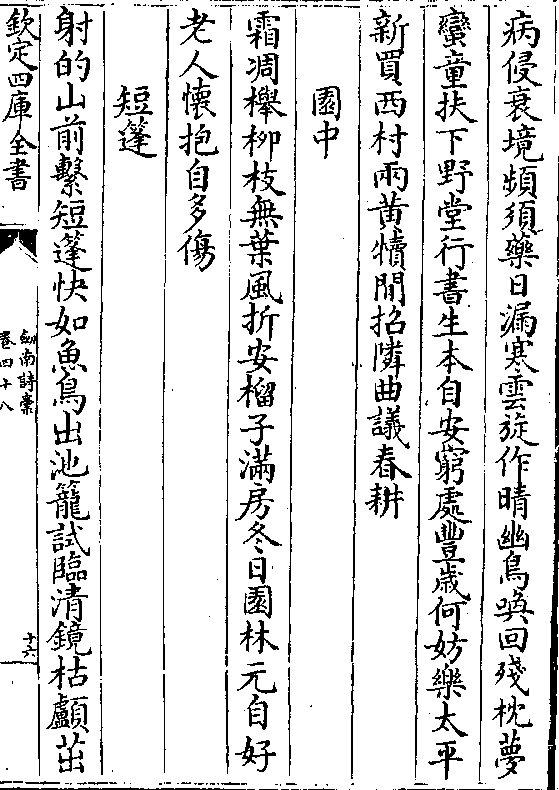 病侵衰境頻須藥日漏寒雲旋作晴幽鳥喚回殘枕夢
蠻童扶下野堂行書生本自安窮處豐歲何妨樂太平
新買西村兩黃犢閒招隣曲議春耕
園中
霜凋櫸柳枝無葉風折安榴子滿房冬日園林元自好
老人懷抱自多傷
短蓬
射的山前繫短蓬快如魚鳥出池籠試臨清鏡枯顱茁
欽定四庫全書
劍南詩稾
卷四十八
十六